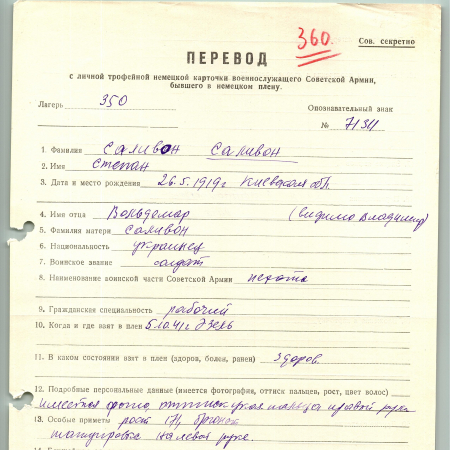 360.
Сов. секретно
ПЕРЕВОД
с личной трофейной немецкой карточки военнослужащего Советской Армии,
бывшего в немецком плену.
Лагерь 350
Опознавательный знак
№ 71311
1. Фамилия Саливон Саливон
2. Имя Степан
3. Дата и место рождения 26.5.1919г Киевская обл.
4. Имя отца Вольдемар (видимо Владимир)
5. Фамилия матери Саливон
6. Национальность украинец
7. Воинское звание солдат
8. Наименование воинской части Советской Армии пехота
9. Гражданская специальность рабочий
10. Когда и где взят в плен
11. В каком состоянии взят в плен (здоров, болен, ранен) Здоров.
12. Подробные персональные данные (имеется фотография, оттиск пальцев, рост, цвет волос)
имеется фото, оттиск указ. пальца правой руки
13. Особые приметы рост 171,
татуировка на левой руке.